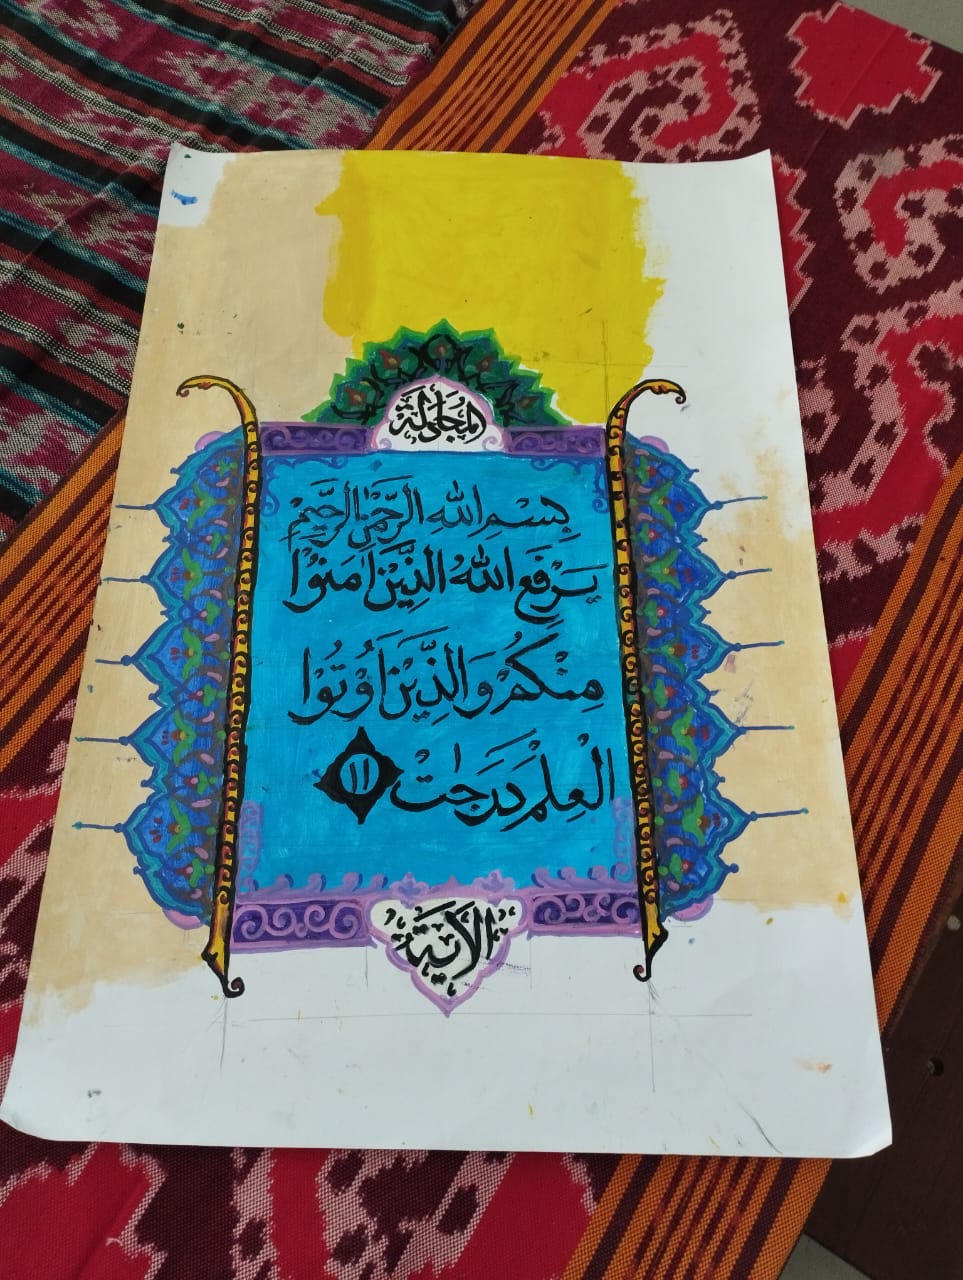 المجادلة
بِسْمِ اللهِ الرَّحْمٰنِ الرَّحِيْمِ
يَرْفَعِ اللهُ الَّذِيْنَ اٰمَنُوْا
مِنْكُمْ وَالَّذِيْنَ اُوْتُوا
الْعِلْمَ دَرَجٰتٍ ١١
الاٰية